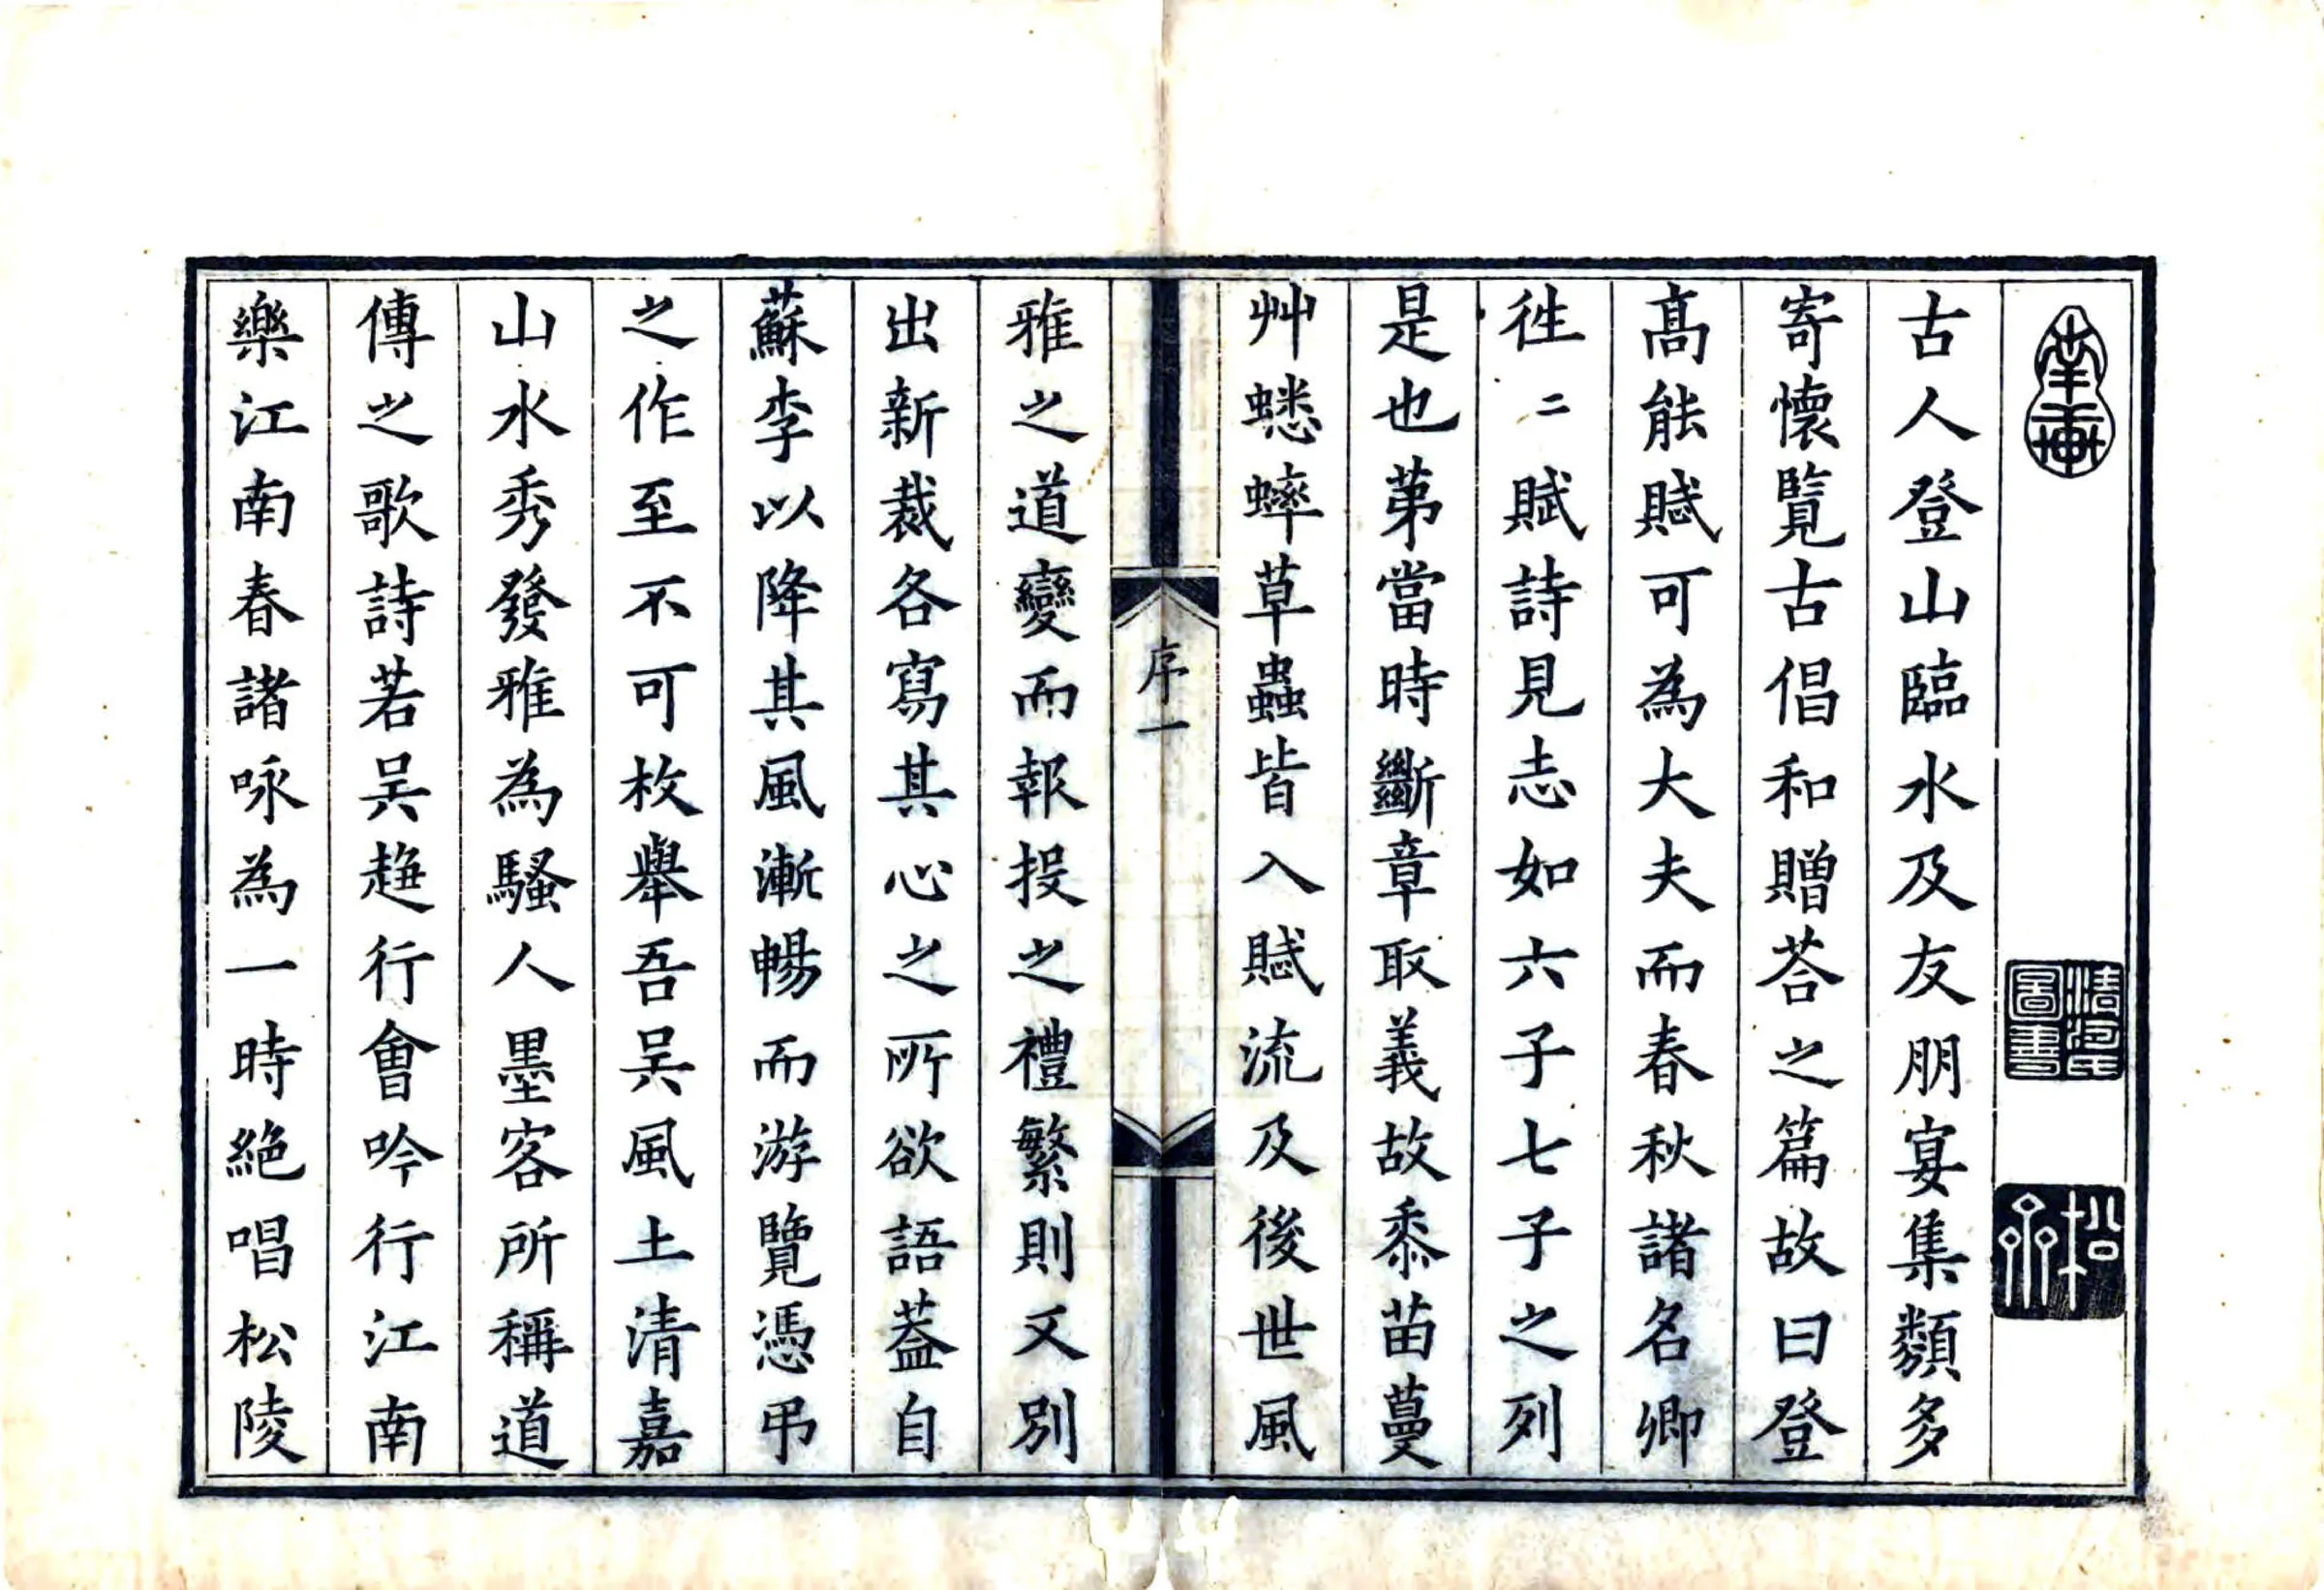 古人登山臨水及友朋宴集類多
寄懷覽古倡和贈荅之篇故曰登
髙能賦可為大夫而春秋諸名卿
徃二賦詩見志如六子七子之列
是也苐當時斷章取義故黍苗蔓
艸蟋蟀草蟲皆入賦流及後世風
序一
雅之道變而報投之禮繁則又別
出新裁各寫其心之所欲語葢自
蘇李以降其風漸暢而游覽憑弔
之作至不可枚舉吾吳風土清嘉
山水秀發雅為騷人墨客所稱道
傳之歌詩若吳趨行會吟行江南
樂江南春諸咏為一時絶唱松陵